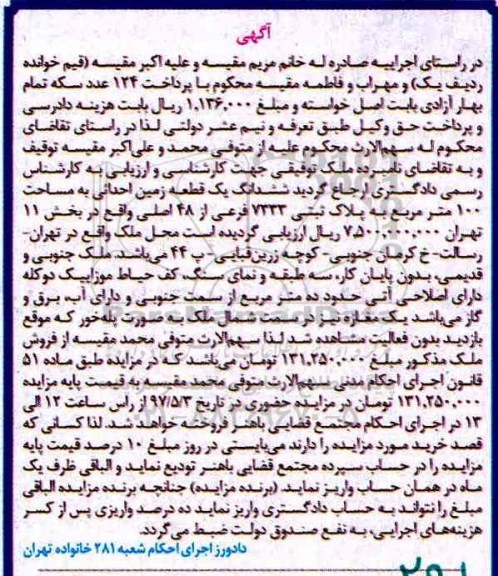 آگهی
در راستای اجراییه صادره له خانم مریم مقیسه و علیه اکبر مقیسه (قیم خوانده
ردیف یک) و مهراب و فاطمه مقیسه محکوم با پرداخت ۱۲۴ عدد سکه تمام
بهار آزادی بابت اصل خواسته و مبلغ ۱,۱۳۶,۰۰۰ ریال بابت هزینه دادرسی
و پرداخت حق وکیل طبق تعرفه و نیم عشر دولتی لذا در راستای تقاضای
محکوم له سهم‌الارث محکوم علیه از متوفی محمد و علی‌اکبر مقیسه توقیف
و به تقاضای نامبرده ملک توقیفی جهت کارشناسی و ارزیابی به کارشناس
رسمی دادگستری ارجاع گردید ششدانگ یک قطعه زمین احداثی به مساحت
۱۰۰ متر مربع به پلاک ثبتی ۷۳۳۳ فرعی از ۴۸ اصلی واقع در بخش ۱۱
تهران ۷,۵۰۰,۰۰۰,۰۰۰ ریال ارزیابی گردیده است محل ملک واقع در تهران-
رسالت- خ کرمان جنوبی- کوچه زرین‌قبایی- پ ۴۴ می‌باشد. ملک جنوبی و
قدیمی، بدون پایان کار، سه طبقه و نمای سنگ، کف حیاط موزاییک دوکله
دارای اصلاحی آتی حدود ده متر مربع از سمت جنوبی و دارای آب، برق و
گاز می‌باشد یک مغازه نیز در سمت شمال ملک به صورت پله‌خور که موقع
بازدید بدون فعالیت مشاهده شد لذا سهم‌الارث متوفی محمد مقیسه از فروش
ملک مذکور مبلغ ۱۳۱,۲۵۰,۰۰۰ تومان می‌باشد که در مزایده طبق ماده ۵۱
قانون اجرای احکام مدنی سهم‌الارث متوفی محمد مقیسه به قیمت پایه مزایده
۱۳۱,۲۵۰,۰۰۰ تومان در مزایده حضوری در تاریخ ۹۷/۵/۳ از راس ساعت ۱۲ الی
۱۳ در اجرای احکام مجتمع قضایی باهنر فروخته خواهد شد. لذا کسانی که
قصد خرید مورد مزایده را دارند می‌بایستی در روز مبلغ ۱۰ درصد قیمت پایه
مزایده را در حساب سپرده مجتمع قضایی باهنر تودیع نماید و الباقی ظرف یک
ماه در همان حساب واریز نماید. (برنده مزایده) چنانچه برنده مزایده الباقی
مبلغ را نتواند به حساب دادگستری واریز نماید ده درصد واریزی پس از کسر
هزینه‌های اجرایی، به نفع صندوق دولت ضبط می‌گردد.
دادورز اجرای احکام شعبه ۲۸۱ خانواده تهران